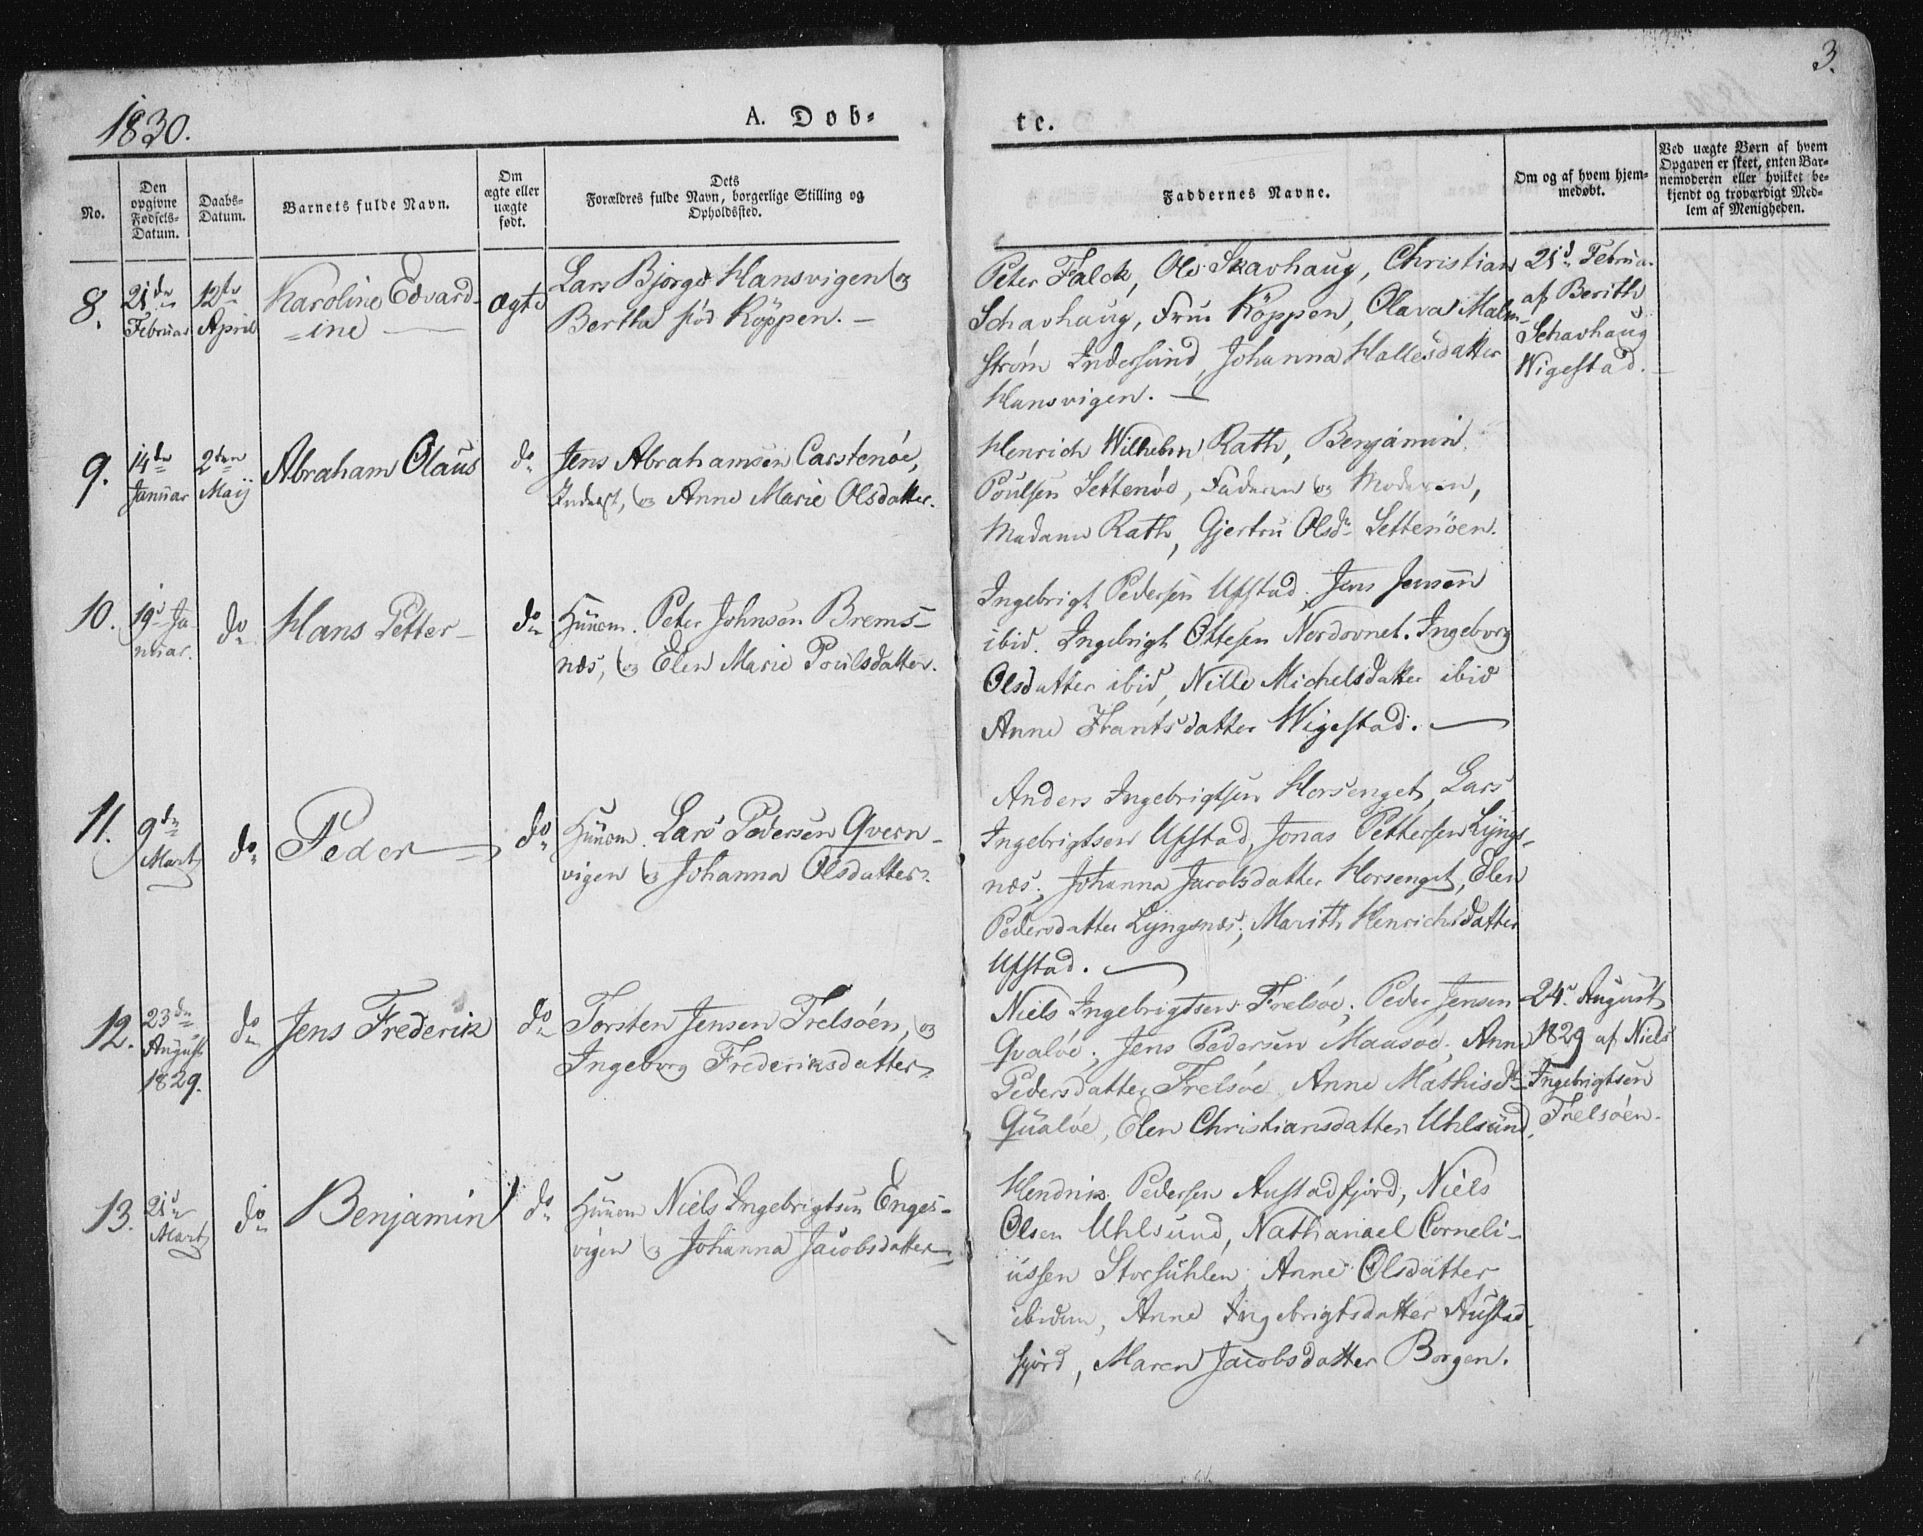 3.
1830.
A. Døb-
te.
No.
Den opgivne Fødsels-Datum.
Daabs-Datum.
Barnets fulde Navn.
Om ægte eller uægte født.
Dets Forældres fulde Navn, borgerlige Stilling og Opholdssted.
Faddernes Navne.
Om og af hvem hjem-medøbt.
Ved uægte Børn af hvem Opgaven er skeet, enten Bar-nemoderen eller hvilket be-kjendt og troværdigt Med-lem af Menigheden.
8.
21de
Februar
12te
April
Karoline Edvard-
-ine
Ægte
Lars Bjørge Hansvigen og
Bertha fød Köppen.
Peter Falck, Ole Skavhaug, Christian
Schavhaug, Frue Köppen, Olava Malm-
strøm Indersund, Johanna Hallesdatter
Hansvigen.
21de Februar
af Berith
Schavhaug
Wigestad.
9.
14de
Januar
2den
Maij
Abraham Olaus
do
Jens Abrahamsen Carstenøe,
Inderst, og Anne Marie Olsdatter.
Henrich Wilhelm Rath, Benjamin
Poulsen Settenøe, Faderen og Moderen,
Madame Rath, Gjertru Olsdr Settenöen.
10.
19de Ja-
nuar.
do
Hans Petter
do
Huusm. Peter Johnsen Brems-
næs, og Elen Marie Poulsdatter.
Ingebrigt Pedersen Ufstad, Jens Jensen
ibid. Ingebrigt Ottesen Nordovnet. Ingeborg
Olsdatter ibid, Nille Michelsdatter ibid
Anne Frantsdatter Wigestad.
11.
9de
Marts
do
Peder
do
Huusm. Lars Pedersen Qvern-
vigen og Johanna Olsdatter.
Anders Ingebrigtsen Horsenget, Lars
Ingebrigtsen Ufstad, Jonas Pettersen Lyngs-
næs, Johanna Jacobsdatter Horsenget, Elen
Pedersdatter Lyngsnæs, Marith Henrichsdatter
Ufstad.
12.
23de
August
1829.
do
Jens Frederik
do
Torsten Jensen Frelsøen, og
Ingeborg Frederiksdatter
Niels Ingebrigtsen Frelsøe, Peder Jensen
Qvaløe, Jens Pedersen Maasøe, Anne
Pedersdatter Frelsøe, Anne Mathisdtr
Qualøe, Elen Christiansdatter Uhlsund,
24de August
1829 af Niels
Ingebrigtsen
Frelsøen.
13.
21de
Marts
do
Benjamin
do
Huusm Niels Ingebrigtsen Enges-
vigen og Johanna Jacobsdatter
Hendrik Pedersen Austadfjord, Niels
Olsen Uhlsund, Nathanael Corneli-
ussen Storsuhlen, Anne Olsdatter
ibidem, Anne Ingebrigtsdatter Austad-
fjord, Maren Jacobsdatter Borgen.